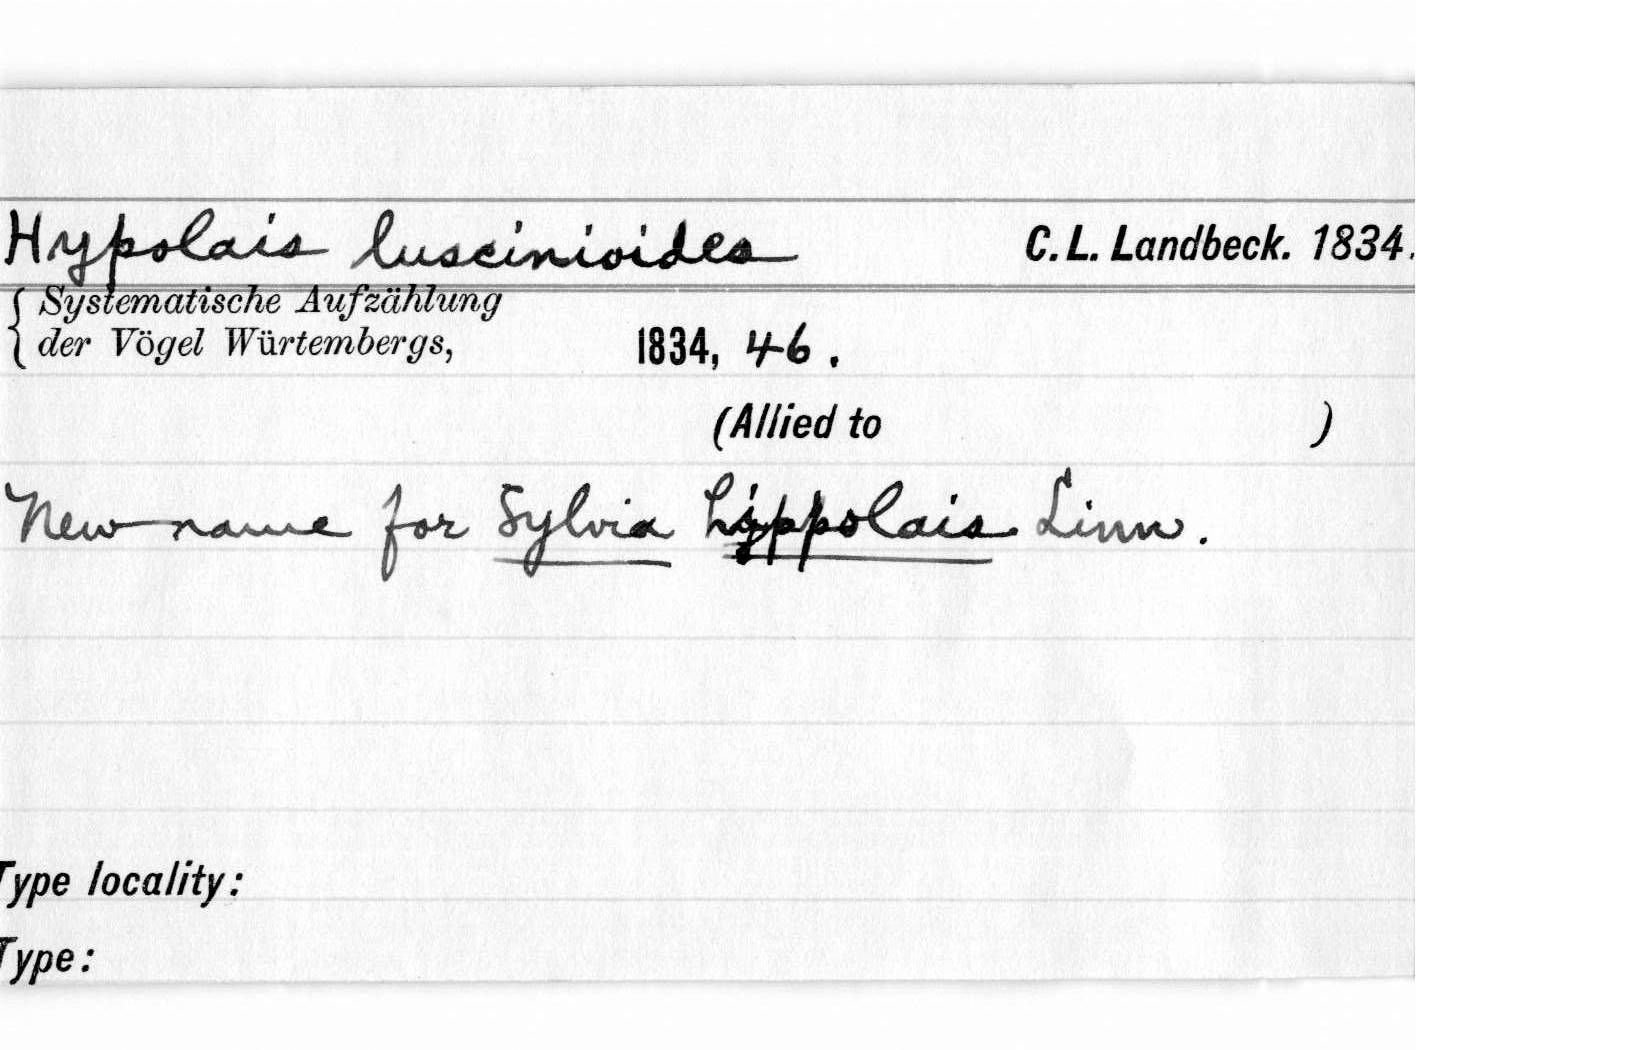 Hypolais luscinioides C. L. Landbeck. 1834.
{ Systematische Aufzählung
der Vögel Würtembergs, 1834, 46.
(Allied to )
New name for Sylvia hippolais Linn.
Type locality:
Type: